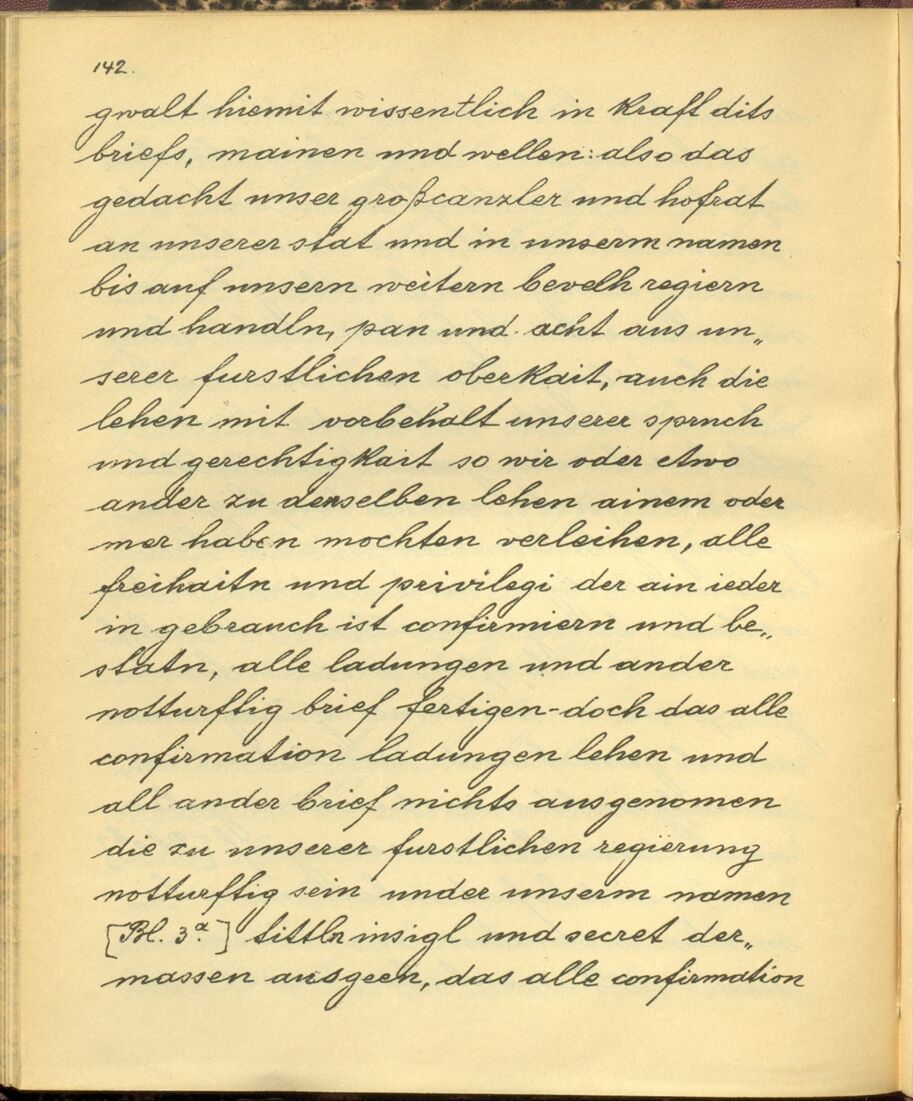 142.
gwalt hiemit wissentlich in kraft dits
briefs, mainen und wellen: also das
gedacht unser großcanzler und hofrat
an unserer stat und in unserm namen
bis auf unsern weitern bevelh regiern
und handln, pan und acht aus un„
serer furstlichen oberkait, auch die
lehen mit vorbehalt unserer spruch
und gerechtigkait so wir oder etwo
ander zu denselben lehen ainem oder
mer haben mochten verleihen, alle
freihaitn und privilegi der ain ieder
in gebrauch ist confirmiern und be„
statn, alle ladungen und ander
notturftig brief fertigen-doch das alle
confirmation ladungen lehen und
all ander brief nichts ausgenomen
die zu unserer furstlichen regierung
notturftig sein under unserm namen
[Bl. 3.a] tittln insigl und secret der„
massen ausgeen, das alle confirmation